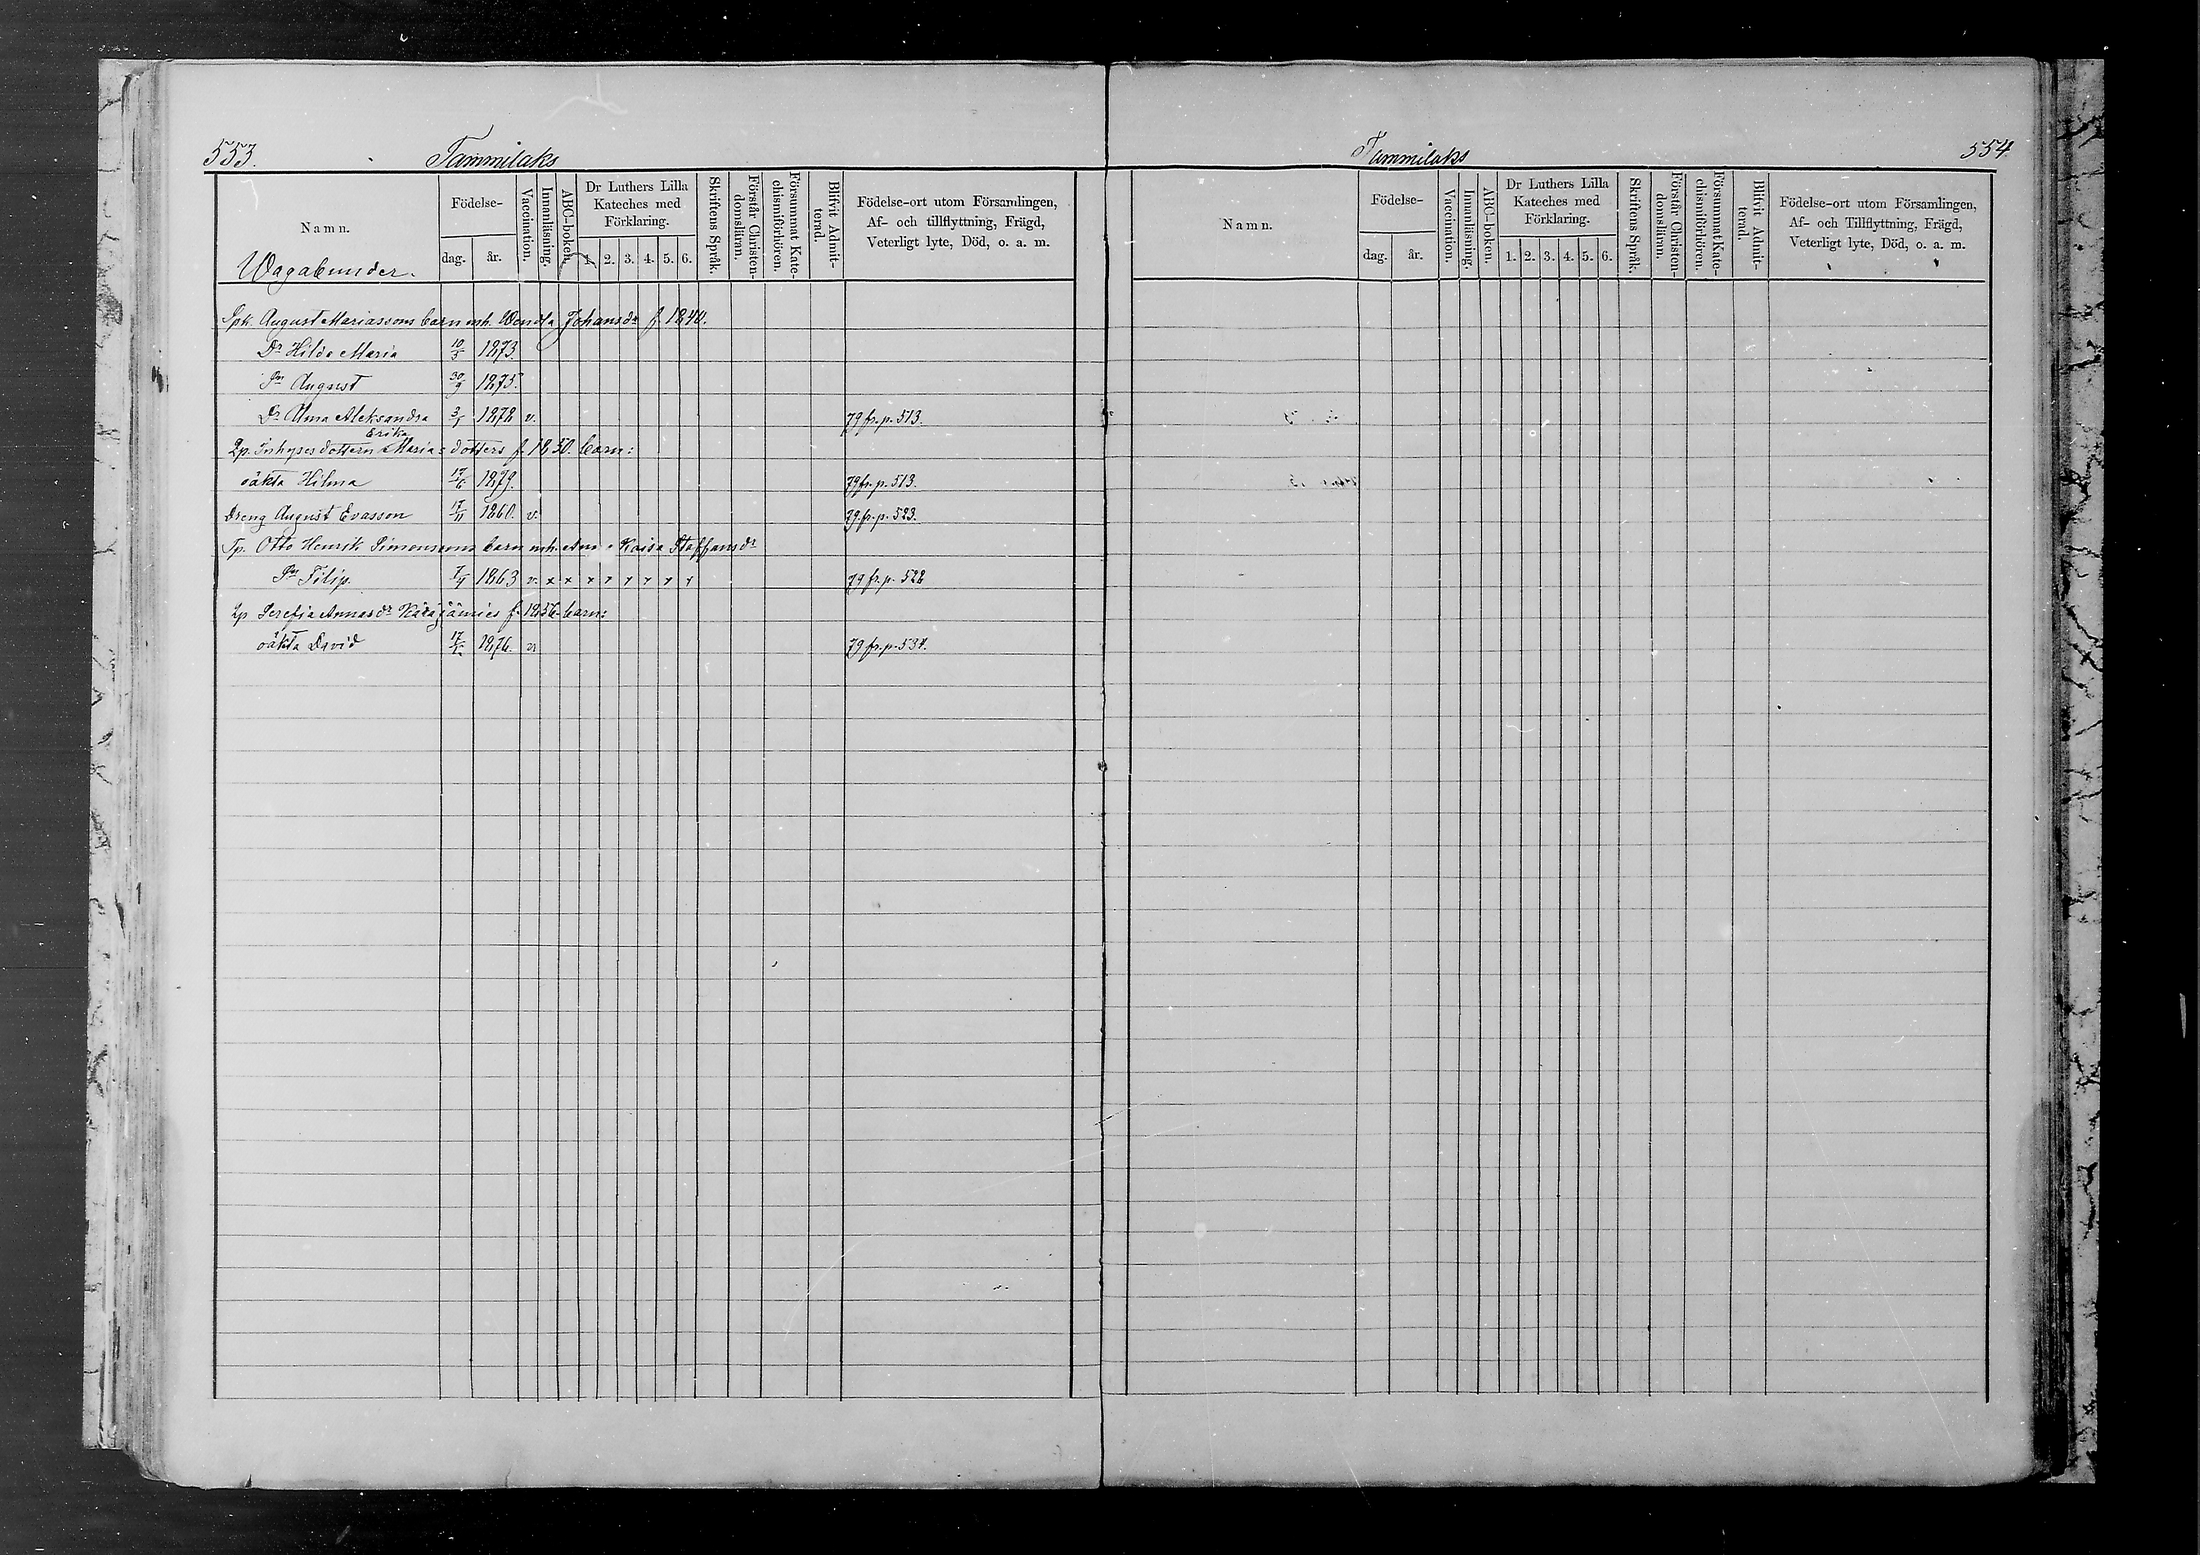 553.
Tammilaks
Namn.
Födelse-
dag.
år.
Vaccination.
Innanläsning.
ABC-boken.
Dr Luthers Lilla
Kateches med
Förklaring.
1. 2. 3. 4. 5. 6.
Skriftens Språk.
Förstår Christen-
domsläran.
Försummat Kate-
chismiförhören.
Blifvit Admit-
terad.
Födelse-ort utom Församlingen,
Af- och tillflyttning, Frägd,
Veterligt lyte, Död, o. a. m.
Wagabunder.
Spk. August Mariassons barn mh. Wendla Johansdr f. 1840.
Dr Hilda Maria 10/3 1873.
Sn August 30/9 1875.
Dr Alma Aleksandra 3/1 1878 v. 79 fr. p. 513.
Erika
Lp. Inhysesdottern Maria = dotters f. 1850. barn:
oäkta Hilma 17/6 1879. 79 fr. p. 513.
Dreng August Evasson 17/11 1860. v. 79. fr. p. 523.
Tp. Otto Henrik Simonsons barn mh. Ann = Kaisa Staffansdr
Sn Filip. 7/4 1863 v. x x x x x x x x 79 fr. p. 528
Lp. Serefia Annasdr f. 1856. barn:
oäkta David 1876. v 79 fr. p. 534.
Tammilaks
554
Namn.
Födelse-
dag.
år.
Vaccination.
Innanläsning.
ABC-boken.
Dr Luthers Lilla
Kateches med
Förklaring.
1. 2. 3. 4. 5. 6.
Skriftens Språk.
Förstår Christen-
domsläran.
Försummat Kate-
chismiförhören.
Blifvit Admit-
terad.
Födelse-ort utom Församlingen,
Af- och Tillflyttning, Frägd,
Veterligt lyte, Död, o. a. m.